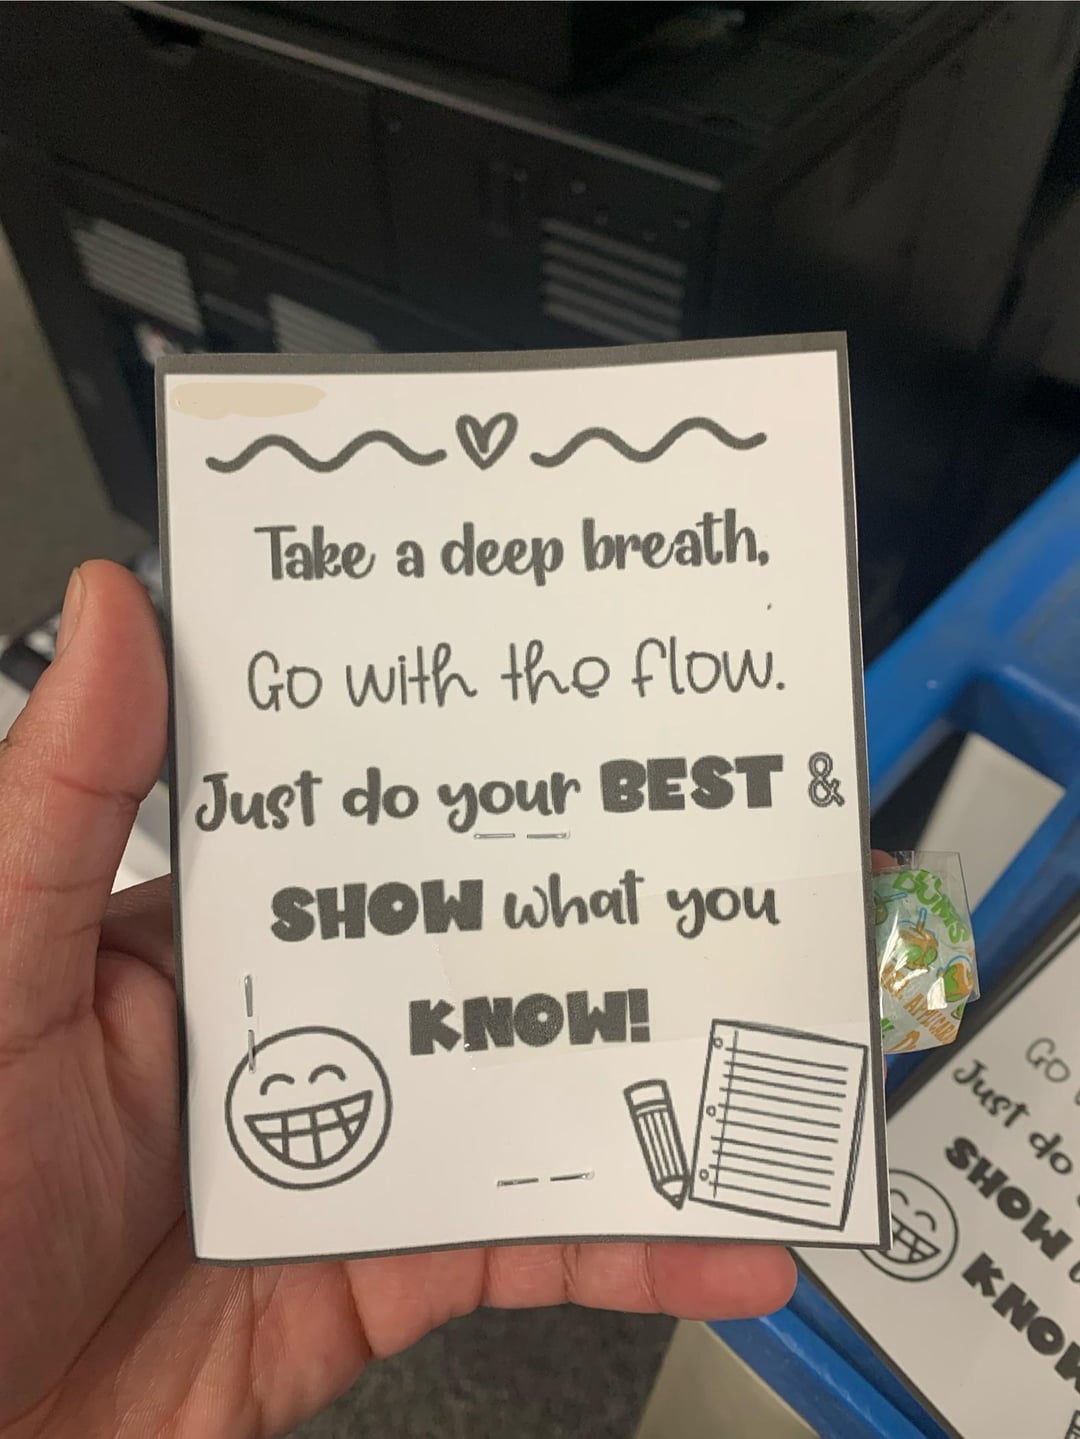 Take a deep breath,
Go with the flow.
Just do your BEST &
SHOW what you
KNOW!
DUMS
Go
Just do
SHOW
KNOW